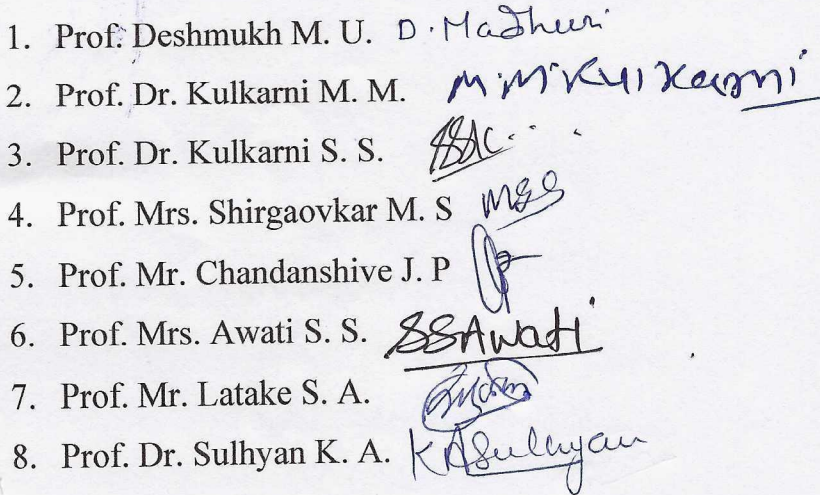 1. Prof. Deshmukh M. U. D. Madhuri
2. Prof. Dr. Kulkarni M. M. M.M Kulkarni
3. Prof. Dr. Kulkarni S. S. SSK...
4. Prof. Mrs. Shirgaovkar M. S MSS
5. Prof. Mr. Chandanshive J. P
6. Prof. Mrs. Awati S. S. SSAwati
7. Prof. Mr. Latake S. A.
8. Prof. Dr. Sulhyan K. A. KASulhyan